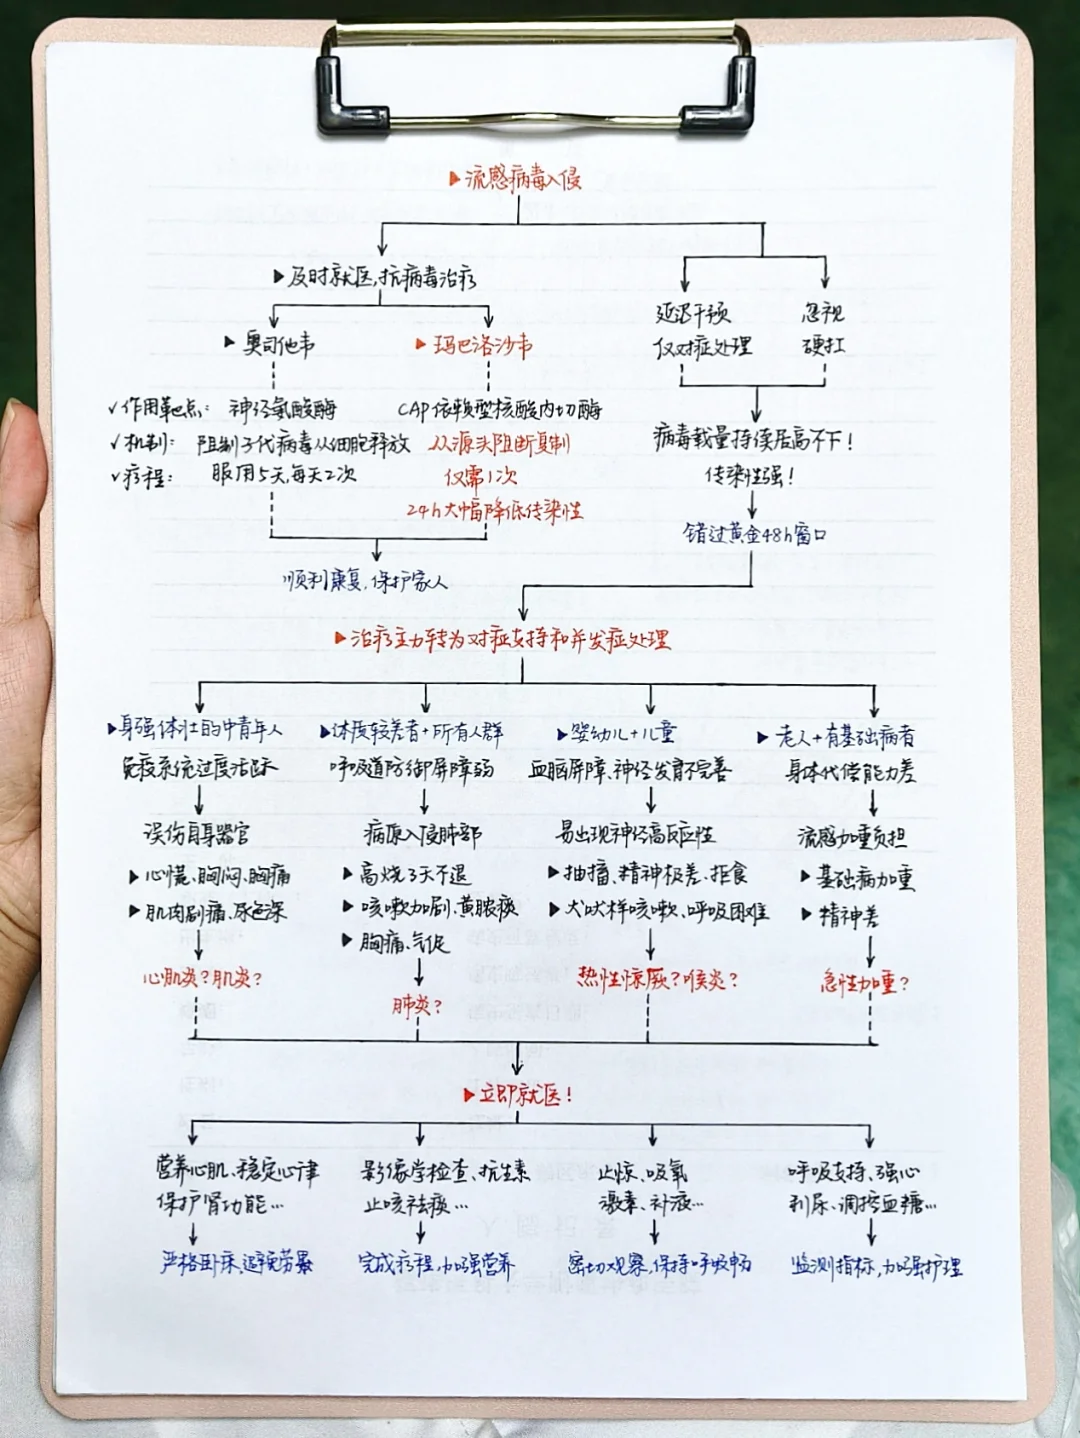 ▶流感病毒入侵
▶及时就医,抗病毒治疗
延迟干预
仅对症处理
忽视
硬扛
▶奥司他韦
▶玛巴洛沙韦
✓作用靶点: 神经氨酸酶 CAP依赖型核酸内切酶
✓机制: 阻制子代病毒从细胞释放 从源头阻断复制
✓疗程: 服用5天,每天2次 仅需1次
24h大幅降低传染性
顺利康复,保护家人
病毒载量持续居高不下!
传染性强!
错过黄金48h窗口
▶治疗主力转为对症支持和并发症处理
▶身强体壮的中青年人
免疫系统过度活跃
误伤自身器官
▶心慌、胸闷、胸痛
▶肌肉剧痛、尿色深
心肌炎?肌炎?
▶体质较差者+所有人群
呼吸道防御屏障弱
病原入侵肺部
▶高烧3天不退
▶咳嗽加剧、黄脓痰
▶胸痛、气促
肺炎?
▶婴幼儿+儿童
血脑屏障、神经发育不完善
易出现神经高反应性
▶抽搐、精神极差、拒食
▶犬吠样咳嗽、呼吸困难
热性惊厥?喉炎?
▶老人+有基础病者
身体代偿能力差
流感加重负担
▶基础病加重
▶精神差
急性加重?
▶立即就医!
营养心肌、稳定心律
保护肾功能…
严格卧床,避免劳累
影像学检查、抗生素
止咳祛痰…
完成疗程,加强营养
止惊、吸氧
激素、补液…
密切观察,保持呼吸畅
呼吸支持、强心
利尿、调控血糖…
监测指标,加强护理